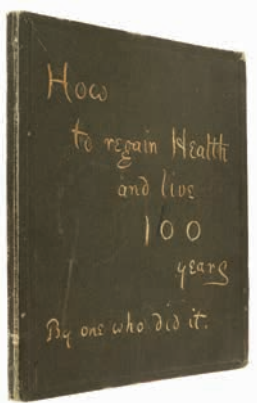 How
to regain Health
and live
100
years
By one who did it.